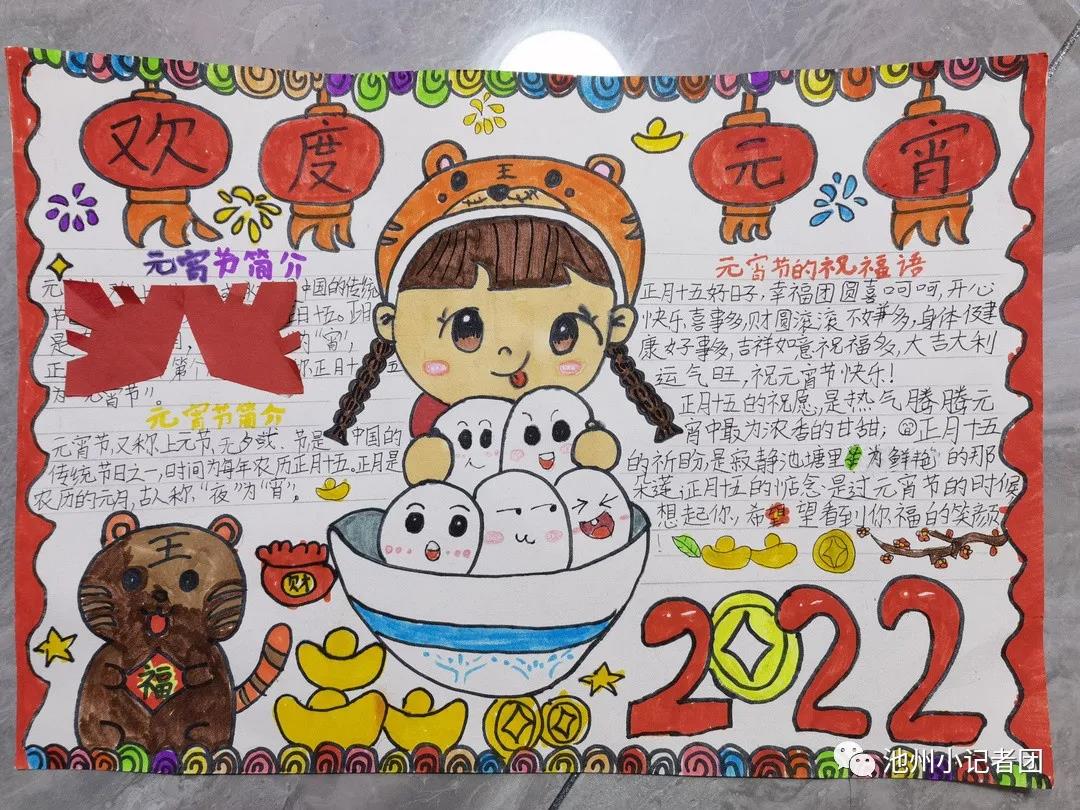 欢度元宵
元宵节简介
中国的传统
节
月十五。此日
是 "宵",
正 第 正月十五
为"元宵节"。
元宵节简介
元宵节,又称上元节,无夕或 节是 中国的
传统节日之一,时间为每年农历正月十五。正月是
农历的元月,古人称"夜"为"宵"。
元宵节的祝福语
正月十五好日子,幸福团圆喜呵呵,开心
快乐喜事多,财圆滚滚不嫌多,身体健
康好事多,吉祥如意祝福多,大吉大利
运气旺,祝元宵节快乐!
正月十五的祝愿,是热气腾腾元
宵中最为浓香的甘甜;正月十五
的祈盼,是寂静池塘里 为鲜艳的那
朵莲;正月十五的惦念,是过元宵节的时候
想起你,希望望看到你福的笑颜
!
王
王
财
福
2022
池州小记者团